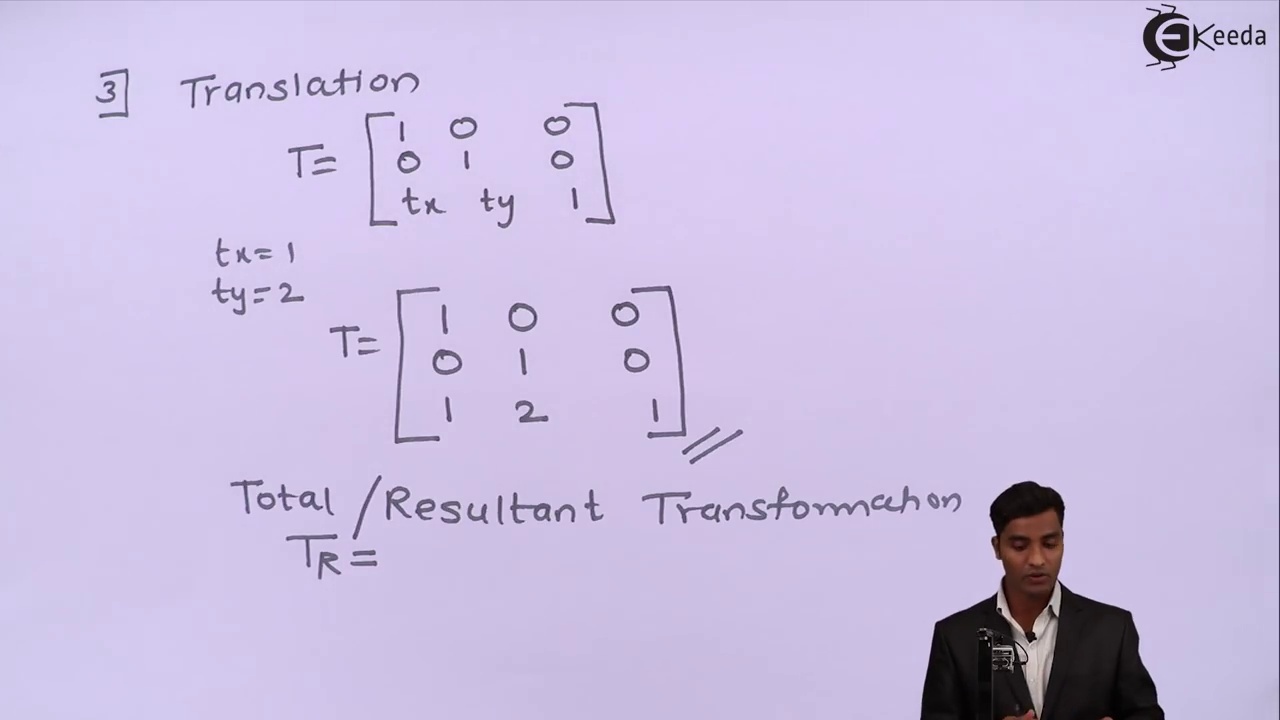 EKeeda
3] Translation
T= [ 1 0 0
0 1 0
tx ty 1 ]
tx=1
ty=2
T= [ 1 0 0
0 1 0
1 2 1 ] //
Total / Resultant Transformation
TR=